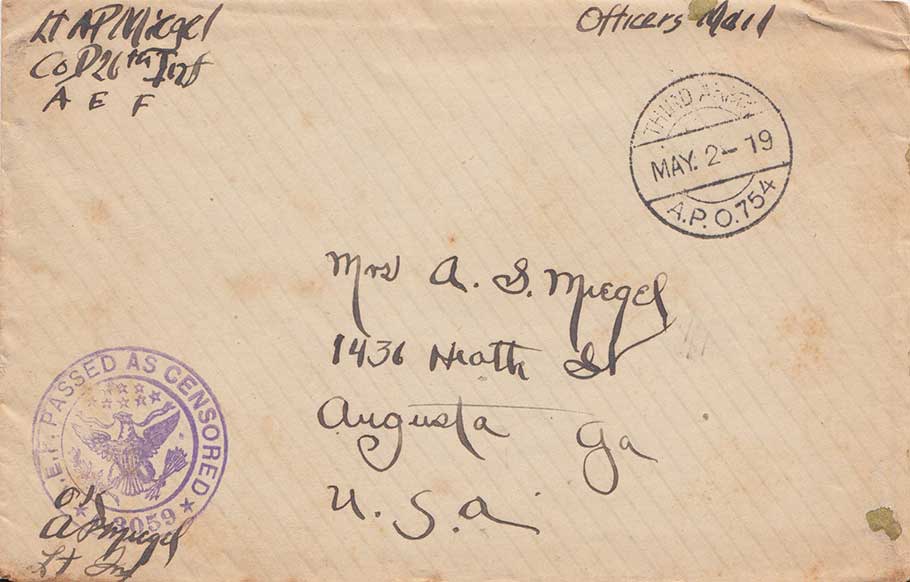 Lt AP Miegel
Co D 26th Inf
A E F
Officers Mail
THIRD ARMY
MAY. 2-19
A.P.O.754
Mrs A. S. Miegel
1436 Heath St
Augusta Ga
U.S.a.
A.E.F. PASSED AS CENSORED
3059
OK
APMiegel
Lt Inf